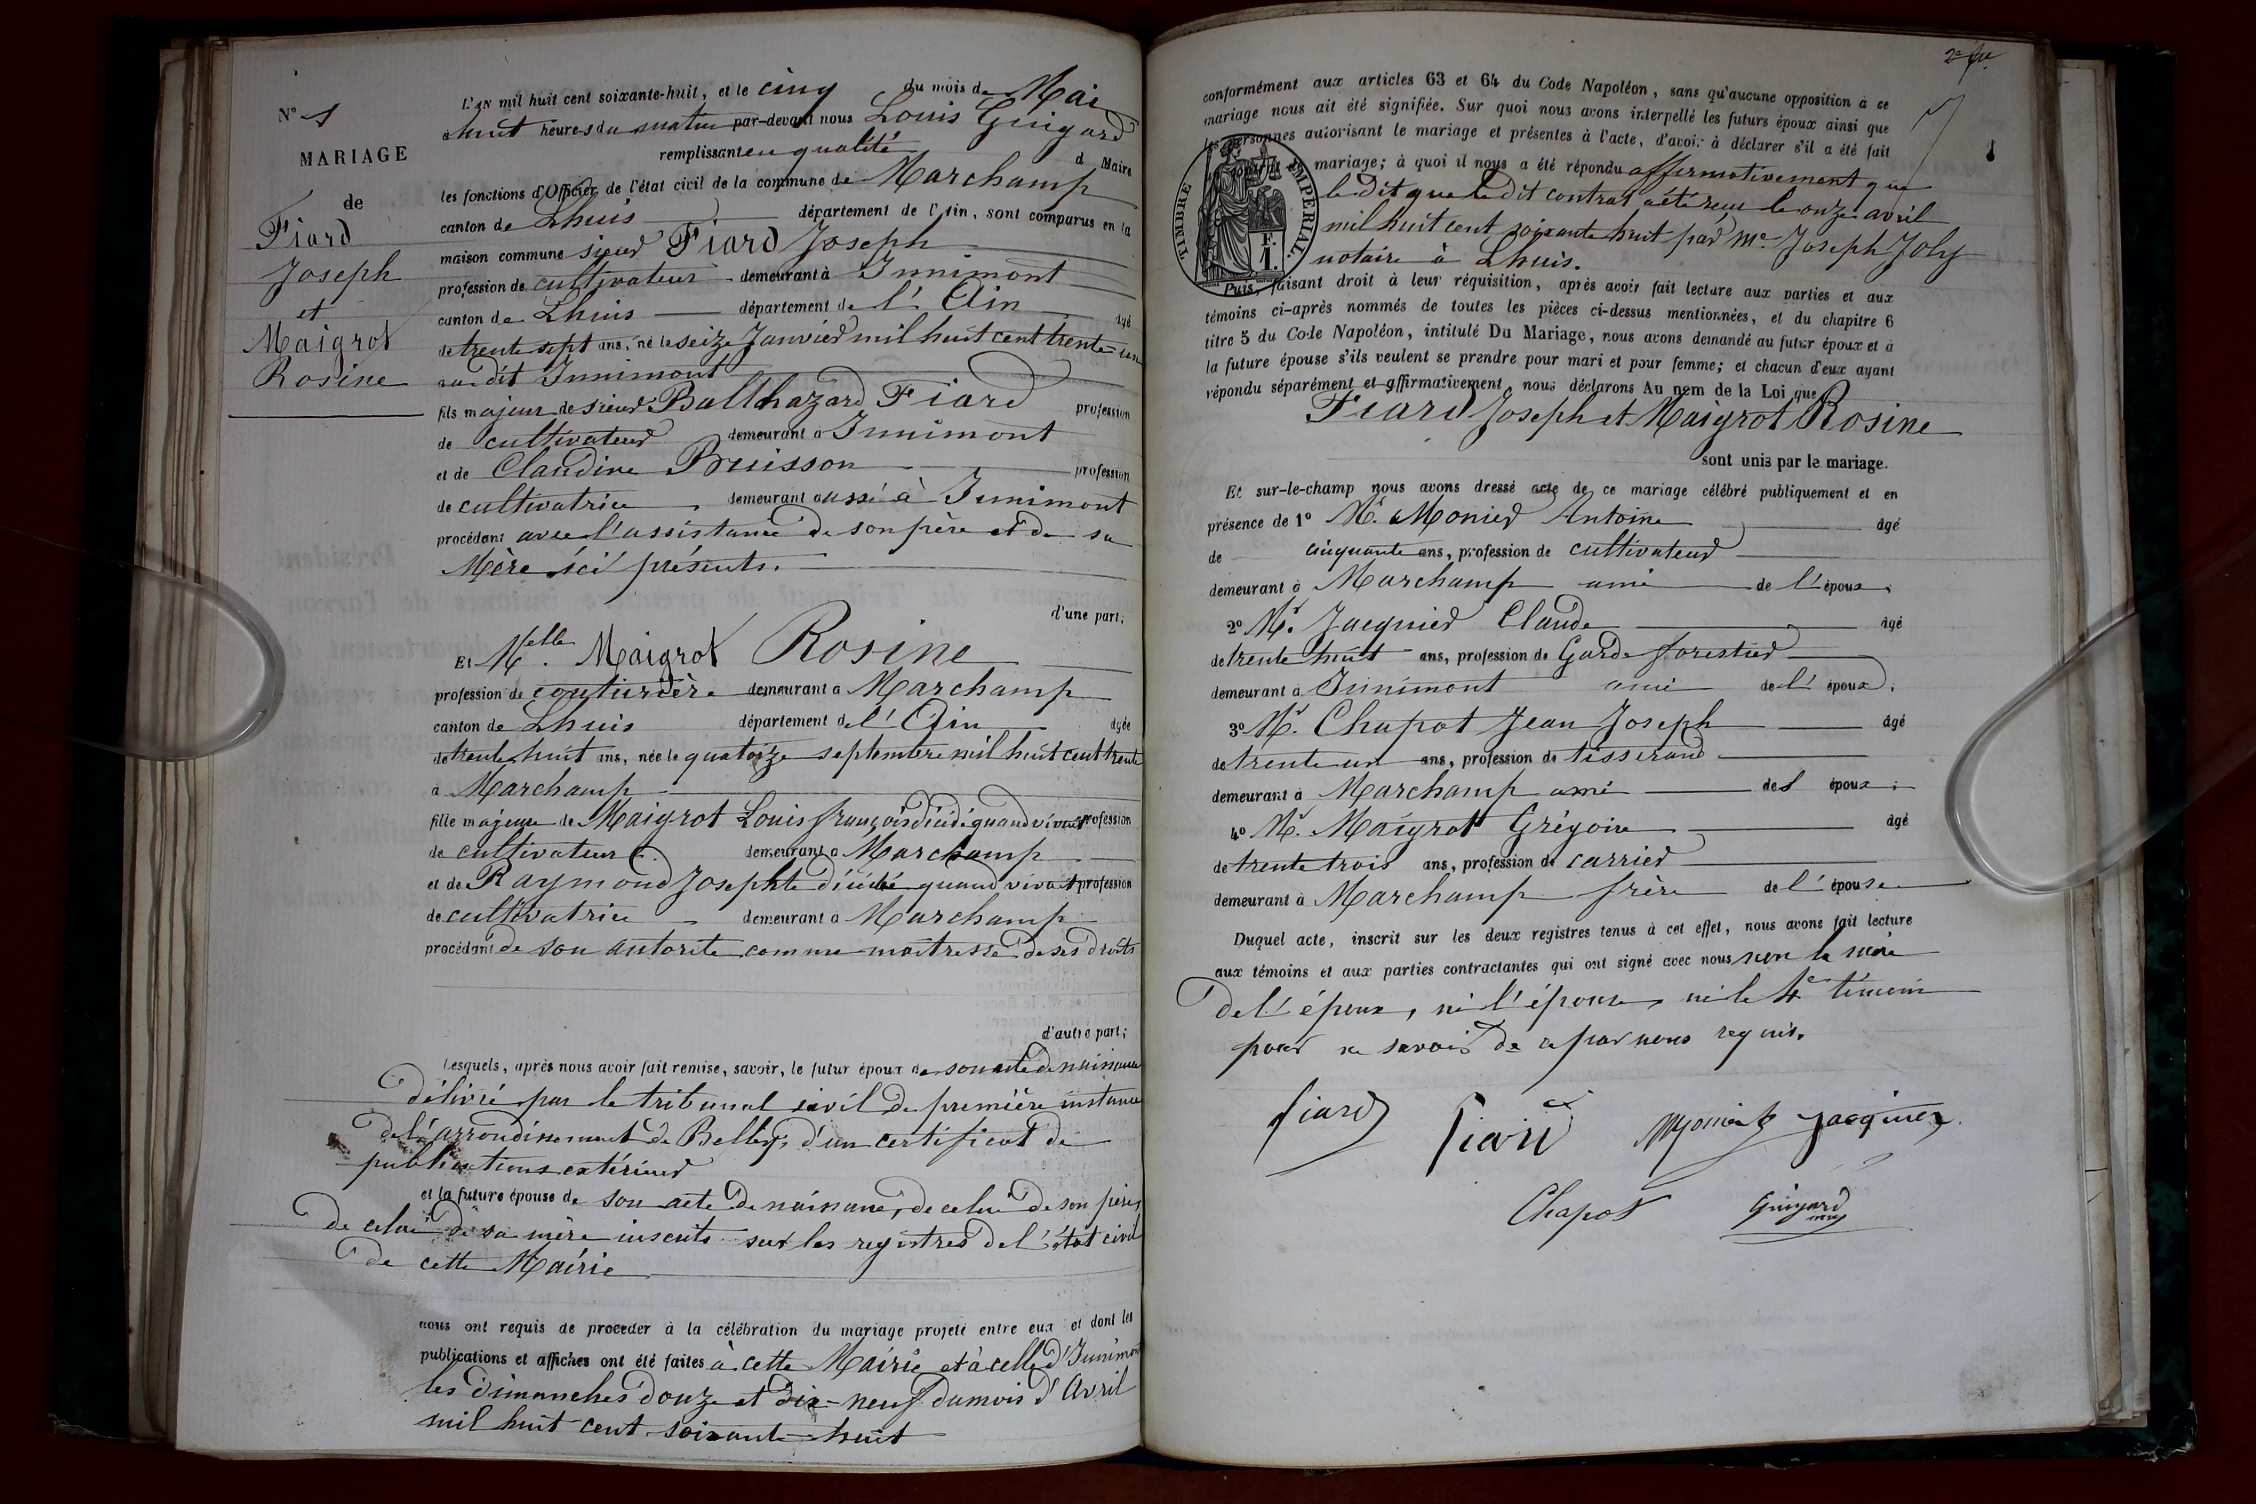 N° 1
MARIAGE
de
Fiard
Joseph
et
Maigrot
Rosine
L'AN mil huit cent soixante-huit, et le cinq du mois de Mai
à huit heures du matin par-devant nous Louis Guigard
remplissant en qualité d Maire
les fonctions d'Officier de l'état civil de la commune de Marchamp
canton de Lhuis département de l'Ain, sont comparus en la
maison commune sieur Fiard Joseph
profession de cultivateur demeurant à Innimont
canton de Lhuis département de l'Ain âgé
de trente sept ans, né le seize Janvier mil huit cent trente-un
au dit Innimont
fils majeur de sieur Balthazard Fiard profession
de cultivateur demeurant à Innimont
et de Claudine Bruisson profession
de cultivatrice demeurant aussi à Innimont
procédant avec l'assistance de son père et de sa
Mère ici présents.
d'une part;
Et Melle. Maigrot Rosine
profession de couturière demeurant à Marchamp
canton de Lhuis département de l'Ain âgée
de trente huit ans, née le quatorze septembre mil huit cent trente
à Marchamp
fille majeure de Maigrot Louis françois décédé quand vivait profession
de cultivateur demeurant à Marchamp
et de Raymond Josephte décédé quand vivait profession
de cultivatrice demeurant à Marchamp
procédant de son autorite comme maitresse de ses droits
d'autre part;
Lesquels, après nous avoir fait remise, savoir, le futur époux de son acte de naissance
délivré par le tribunal civil de première instance
de l'arrondissement de Belley, d'un certificat de
publications extérieur
et la future épouse de son acte de naissance, de celui de son père,
de celui de sa mère inscrits sur les registres de l'état civil
de cette Mairie
nous ont requis de procéder à la célébration du mariage projeté entre eux et dont les
publications et affiches ont été faites à cette Mairie et à celle d'Innimont
les dimanches douze et dix-neuf du mois d'Avril
mil huit cent soixante-huit
conformément aux articles 63 et 64 du Code Napoléon, sans qu'aucune opposition à ce
mariage nous ait été signifiée. Sur quoi nous avons interpellé les futurs époux ainsi que
les personnes autorisant le mariage et présentes à l'acte, d'avoir à déclarer s'il a été fait
contrat de mariage; à quoi il nous a été répondu affirmativement que
le dit que le dit contrat a été reçu le onze avril
mil huit cent soixante huit par Me Joseph Joly
notaire à Lhuis.
TIMBRE IMPERIAL.
F.
1.
Puis, faisant droit à leur réquisition, après avoir fait lecture aux parties et aux
témoins ci-après nommés de toutes les pièces ci-dessus mentionnées, et du chapitre 6
titre 5 du Code Napoléon, intitulé Du Mariage, nous avons demandé au futur époux et à
la future épouse s'ils veulent se prendre pour mari et pour femme; et chacun d'eux ayant
répondu séparément et affirmativement, nous déclarons Au nom de la Loi que
Fiard Joseph et Maigrot Rosine
sont unis par le mariage.
Et sur-le-champ nous avons dressé acte de ce mariage célébré publiquement et en
présence de 1° Mr. Monier Antoine âgé
de cinquante ans, profession de cultivateur
demeurant à Marchamp ami de l'époux;
2° Mr. Jacquier Claude âgé
de trente huit ans, profession de Garde forestier
demeurant à Innimont ami de l'époux;
3° Mr. Chapot Jean Joseph âgé
de trente un ans, profession de tisserand
demeurant à Marchamp ami des époux;
4° Mr. Maigrot Grégoire âgé
de trente trois ans, profession de carrier
demeurant à Marchamp frère de l'épouse
Duquel acte, inscrit sur les deux registres tenus à cet effet, nous avons fait lecture
aux témoins et aux parties contractantes qui ont signé avec nous non la mère
de l'époux, ni l'épouse, ni le 4e témoin
pour ne savoir de ce par nous requis.
fiard Fiard Monier Jacquier
Chapot Guigard